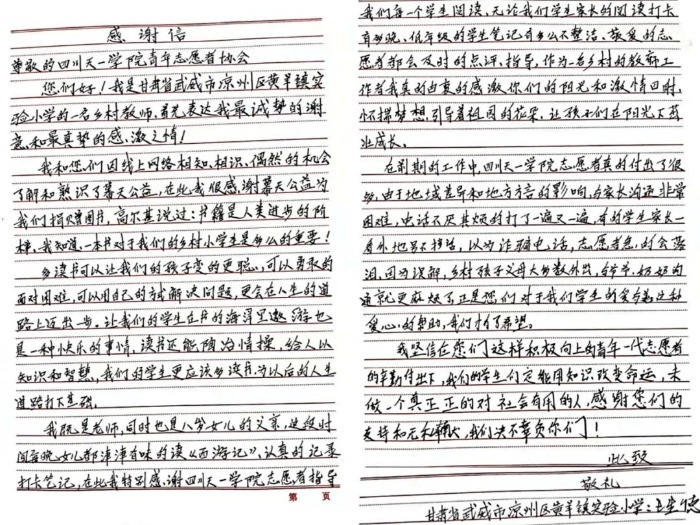 感谢信
尊敬的四川天一学院青年志愿者协会
您们好!我是甘肃省武威市凉州区黄羊镇实
验小学的一名乡村教师,首先表达我最诚挚的谢
意和最真挚的感激之情!
我和您们因线上网络相知、相识,偶然的机会
了解和熟识了幕天公益,在此我很感谢幕天公益为
我们捐赠图书,高尔基说过:书籍是人类进步的阶
梯,我知道,一本书对于我们的乡村小学生是多么的重要!
多读书可以让我们的孩子变的更聪,可以勇敢的
面对困难,可以用自己的方式解决问题,更会在人生的道
路上迈出一步。让我们的学生在书的海洋里遨游也
是一种快乐的事情,读书还能陶冶情操,给人以
知识和智慧,我们的学生更应该多读书,为以后的人生
道路打下基础。
我既是老师,同时也是八岁女儿的父亲,这段时
间每晚女儿都津津有味的读《西游记》,认真的记录
打卡笔记,在此我特别感谢四川天一学院志愿者指导
第 页
我们每一个学生阅读,无论我们学生家长的阅读打卡
有多晚,低年级的学生笔记有多么不整洁,敬爱的志
愿者都会及时的点评、指导,作为一名乡村的教育工
作者我真的由衷的感激你们的阳光和激情四射,
怀揣梦想,引导着祖国的花朵,让孩子们在阳光下茁
业成长。
在前期的工作中,四川天一学院志愿者真的付出了很
多,由于地域差异和地方方言的影响,与家长沟通非常
困难,电话不厌其烦的打了一遍又一遍,有的学生家长一
看外地号不接,以为诈骗电话,志愿者急的会落
泪,因为误解,乡村孩子父母大多数外出,爷爷、奶奶沟
通就更麻烦了正是您们对于我们学生的爱与这种
爱心的帮助,我们才有了希望。
我坚信在您们这样积极向上的青年一代志愿者
的辛勤付出下,我们的学生们定能用知识改变命运,未
做一个真正正的对社会有用的人,感谢您们的
支持和无私,我们决不辜负你们!
此致
敬礼
甘肃省武威市凉州区黄羊镇实验小学: